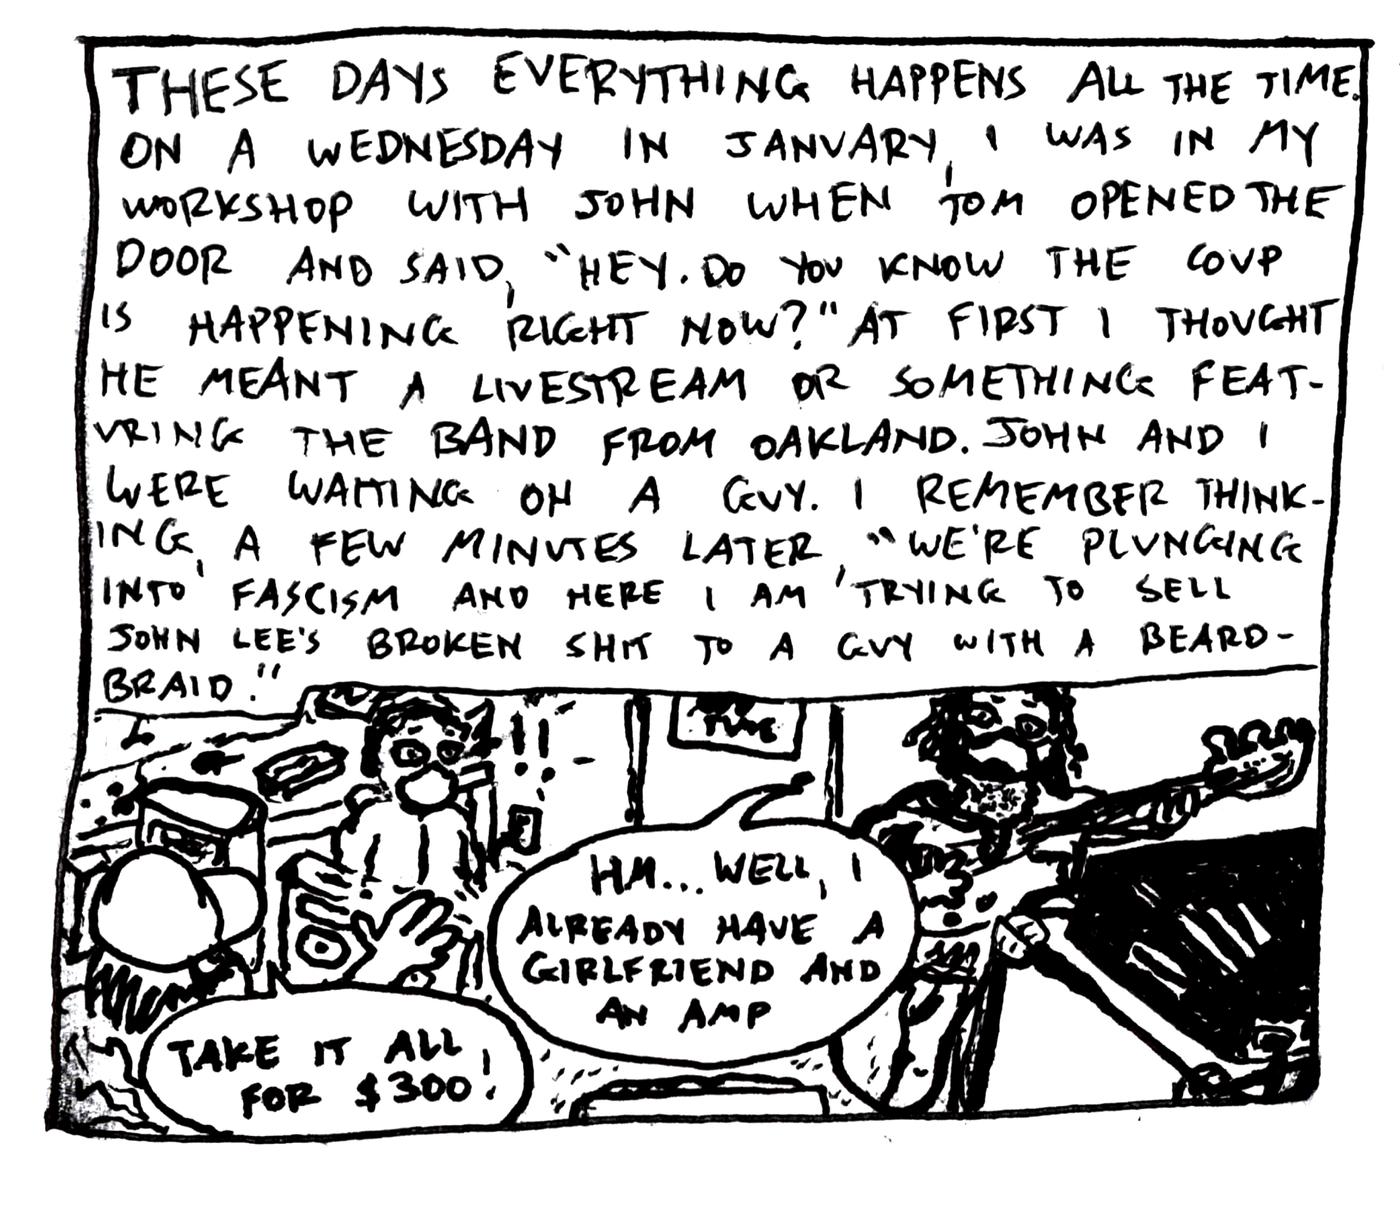 THESE DAYS EVERYTHING HAPPENS ALL THE TIME.
ON A WEDNESDAY IN JANUARY, I WAS IN MY
WORKSHOP WITH JOHN WHEN TOM OPENED THE
DOOR AND SAID, "HEY. DO YOU KNOW THE COUP
IS HAPPENING RIGHT NOW?" AT FIRST I THOUGHT
HE MEANT A LIVESTREAM OR SOMETHING FEAT-
URING THE BAND FROM OAKLAND. JOHN AND I
WERE WAITING ON A GUY. I REMEMBER THINK-
ING, A FEW MINUTES LATER, "WE'RE PLUNGING
INTO FASCISM AND HERE I AM TRYING TO SELL
JOHN LEE'S BROKEN SHIT TO A GUY WITH A BEARD-
BRAID."
!!
HM... WELL, I
ALREADY HAVE A
GIRLFRIEND AND
AN AMP
TAKE IT ALL
FOR $300!